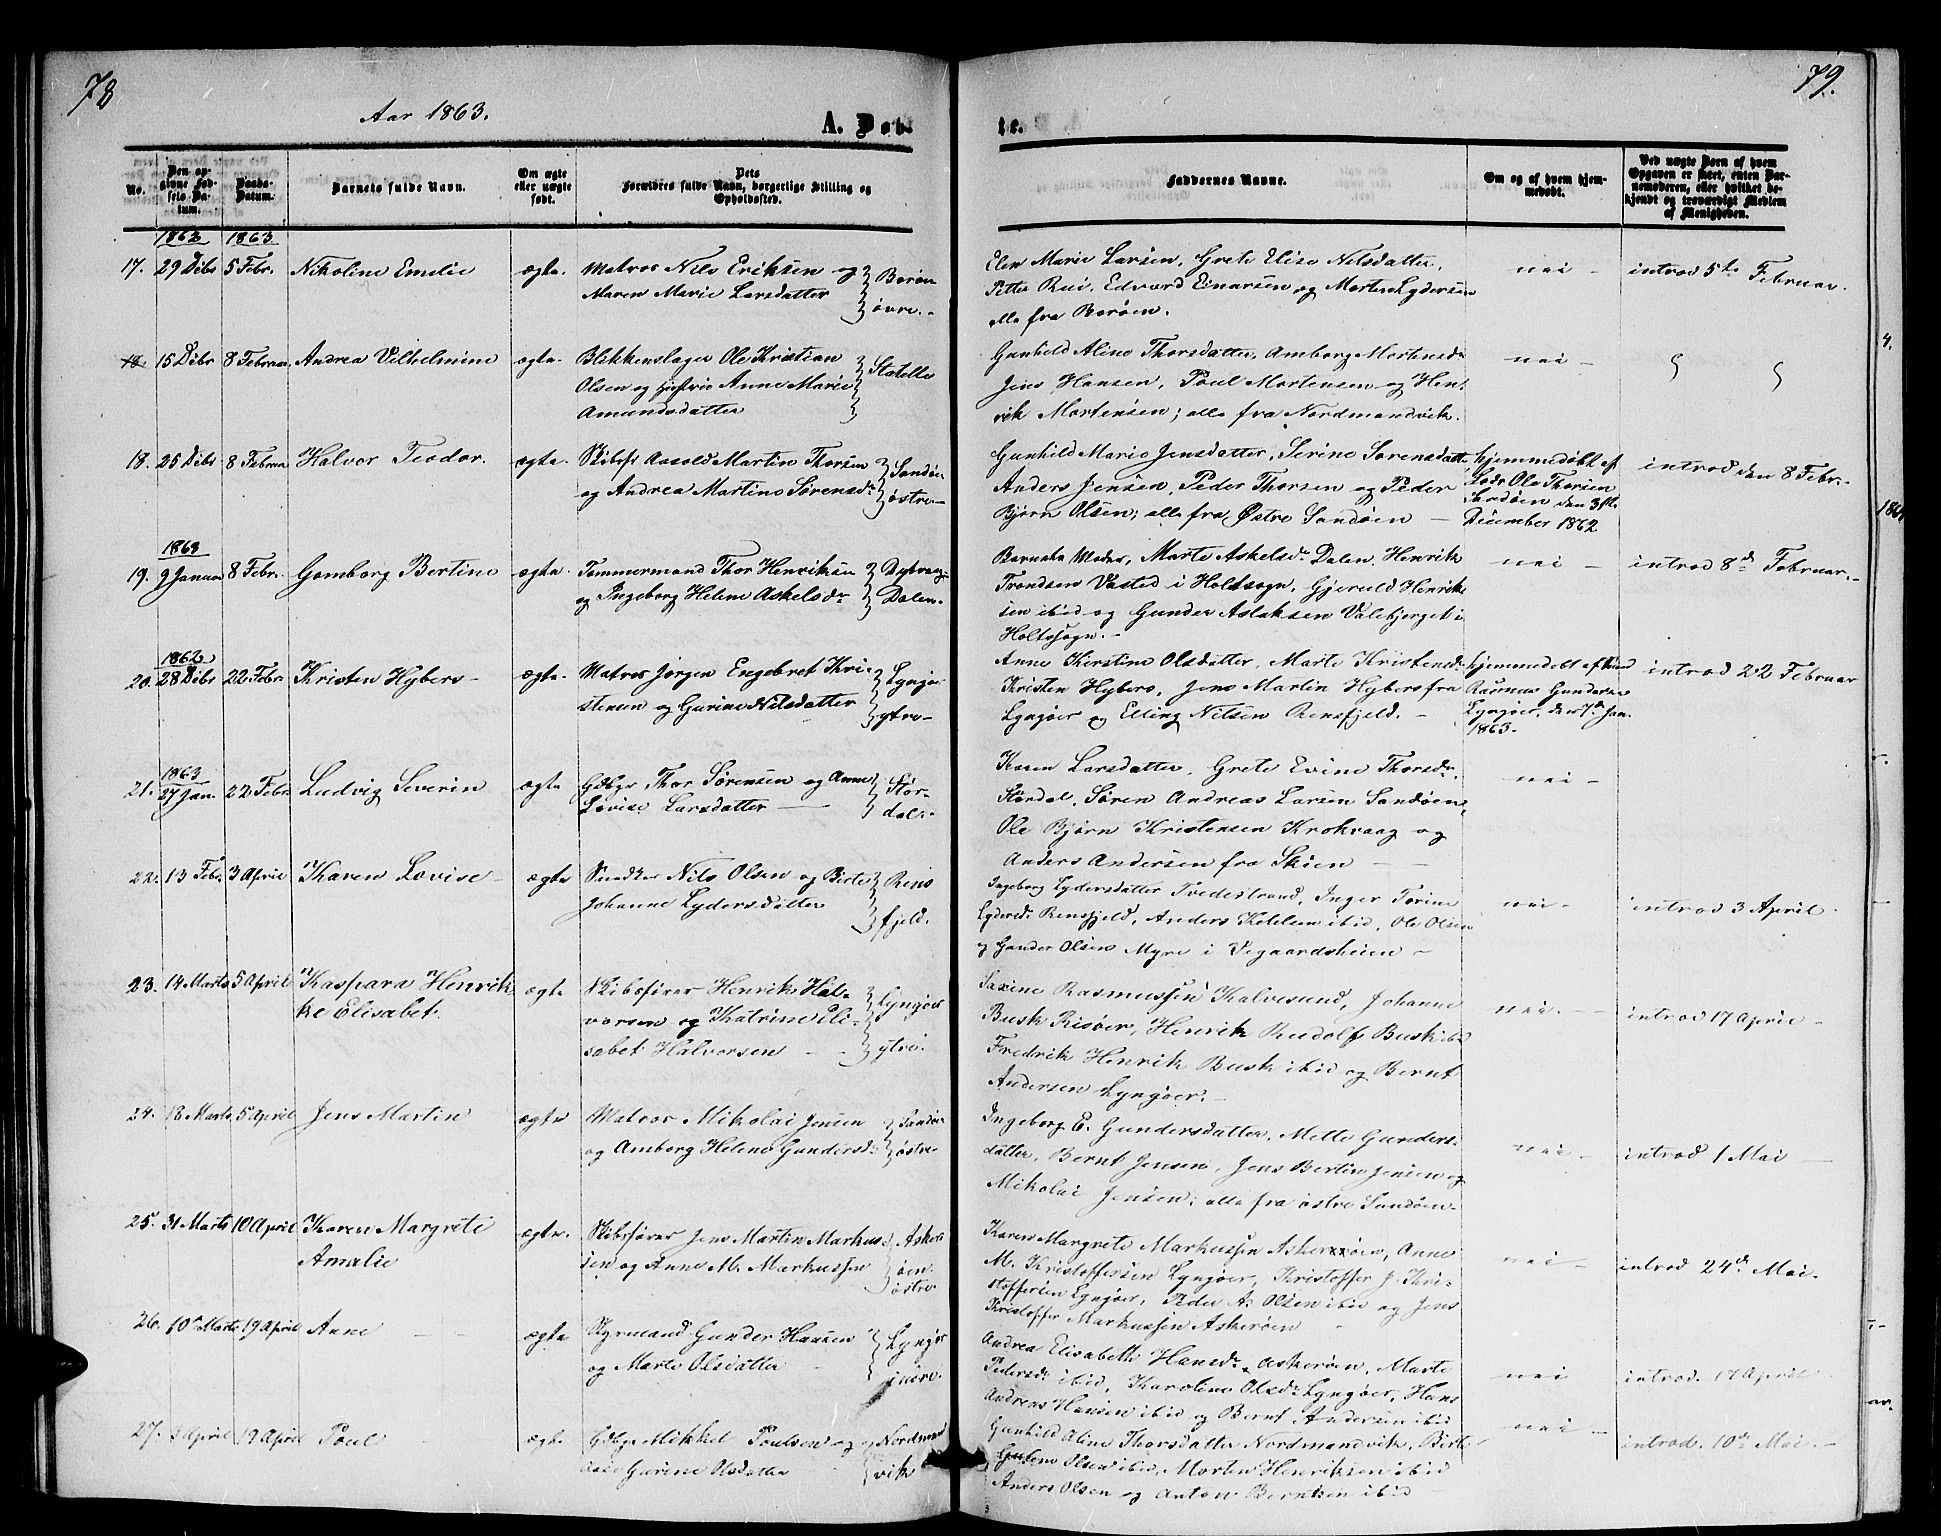 78
Aar 1863.
A. Døb-
No.
Den op-
givne Fød-
sels Da-
tum.
Daabs-
Datum.
Barnets fulde Navn.
Om ægte
eller uægte
født.
Dets
Forældres fulde Navn, borgerlige Stilling og
Opholdssted.
1862 1863
17. 29 Dsbr 5 Febr. Nikoline Emelie ægte. Matros Nils Eriksen og Borøen
Maren Marie Larsdatter øvre.
18 15 Dsbr 8 Februar Andrea Vilhelmine ægte. Blikkenslager Ole Kristian Statelle
Olsen og Hustrue Anne Marie
Amundsdatter
18. 25 Dsbr 8 Februar Halvor Teodor. ægte. Skibsfr Aasold Martin Thorsen Sandøe
og Andrea Martine Sørensdr østre
1863
19. 9 Januar 8 Febr. Gomborg Bertine ægte. Tømmermand Thor Henriksen Dybvaag
og Ingeborg Helene Askelsdr Dalen.
1862
20. 28 Dsbr 22 Febr. Kristen Hybers ægte. Matros Jørgen Engebret Kri- Lyngør
stensen og Gurine Nilsdatter ytre
1863
21. 27 Jan. 22 Febr. Ludvig Severin ægte Gdbgr Thor Sørensen og Anne Stør-
Lovise Larsdatter dal.
22. 13 Febr. 3 April Karen Lovise ægte Snedker Nils Olsen og Birte Rens
Johanne Lydersdatter fjeld.
23. 14 Marts 5 April Kaspara Henrik ægte Skibsfører Henrik Hal- Lyngøer
ke Elisabet. vorsen og Katrine Eli- ytre.
sabet Halvorsen
24. 18 Marts 5 April Jens Martin ægte Matros Mikolai Jensen Sandøe
og Amborg Helene Gundersdr østre
25. 31 Marts 10 April Karen Margrete ægte. Skibsfører Jens Martin Markus- Asker
Amalie sen og Anne M. Markussen øen
østre
26. 10 Marts 19 April Anne ægte Styrmand Gunder Hansen Lyngør
og Marte Olsdatter indre.
27. 1 April 19 April Poul ægte Gdbgr Mikkel Poulsen og Nordmand
Gurine Olsdatter vik
79.
te.
Faddernes Navne.
Om og af hvem hjem-
medøbt.
Ved uægte Børn af hvem
Opgaven er skeet, enten Bar-
nemoderen, eller hvilket be-
kjendt og troværdigt Medlem
af Menigheden.
Elen Marie Larsen, Grete Elise Nilsdatter, nei introd 5te Februar.
Petter Rui, Edvard Einarsen og Morten Lydersen
alle fra Borøen.
Gunhild Aline Thorsdatter, Amborg Mortensdr nei
Jens Hansen, Poul Mortensen og Hen-
rik Mortensen; alle fra Nordmandvik.
Gunhild Marie Jensdatter, Serine Sørensdatter hjemmedøbt af introd den 8 Febr.
Anders Jensen, Peder Thorsen og Peder Lods Ole Thorsen
Bjørn Olsen; alle fra Østre Sandøen Sandøen den 31te
December 1862
Barnets Moder, Marte Askelsdr Dalen, Henrik nei introd 8de Februar.
Trondsen Vasted i Holtsogn, Gjeruld Henrik
sen ibid og Gunder Aslaksen Valebjerget i
Holtsogn.
Anne Kirstine Olsdatter, Marte Kristensdr hjemmedøbt af introd 22 Februar
Kristen Hybers, Jens Martin Hybers fra Rasmus Gundersen
Lyngøer og Elling Nilsen Rensfjeld. Lyngøer, den 7de Jan.
1863.
Karen Larsdatter, Grete Evine Thorsdr nei
Stördal, Søren Andreas Larsen Sandøen,
Ole Bjørn Kristensen Krokvaag og
Anders Andersen fra Skien
Ingeborg Lydersdatter Tvedestrand, Inger Torine nei introd 3 April
Lydersdr Rensfjeld, Anders Ketilsen ibid, Ole Olsen
og Gunder Olsen Myre i Vegaardsheien
Saxine Rasmussen Kalvesund, Johanne nei. introd 17 April
Busk Risøer, Henrik Rudolf Busk ibid
Fredrik Henrik Busk ibid og Bernt
Andersen Lyngøer.
Ingeborg E. Gundersdatter, Mette Gunders- nei introd 1 Mai
datter, Bernt Jensen, Jens Bertin Jensen og
Mikolai Jensen; alle fra østre Sandøen.
Karen Margrete Markussen Askerøen, Anne nei introd 24de Mai.
M. Kristoffersen Lyngøer, Kristoffer J. Kri-
stoffersen Lyngøer, Peder A. Olsen ibid og Jens
Kristoffer Markussen Askerøen
Andrea Elisabeth Hansdr Askerøen, Marte nei introd. 17 April
Pedersdr ibid, Karoline Olsdr Lyngøer, Hans
Andreas Hansen ibid og Bernt Andersen ibid
Gunhild Aline Thorsdatter Nordmandvik, Birte nei introd. 10de Mai.
Gurine Olsen ibid, Morten Henriksen ibid
Anders Olsen og Anton Berntsen ibid